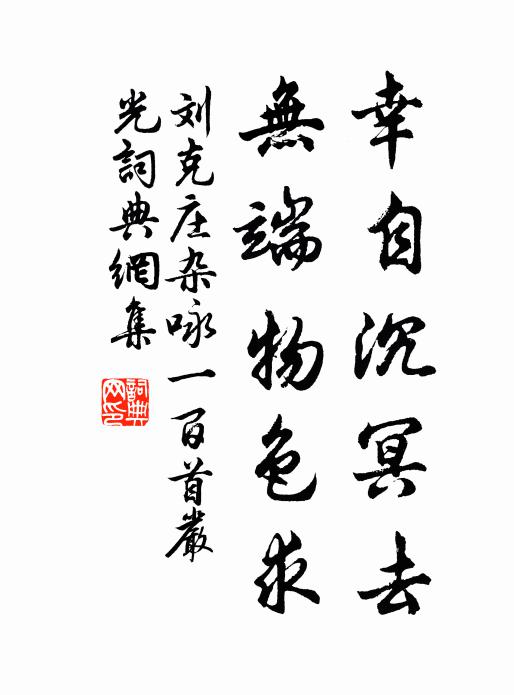 幸自沉冥去
無端物色求
刘克庄杂咏一百首嚴
光詞典網集
詞典网印